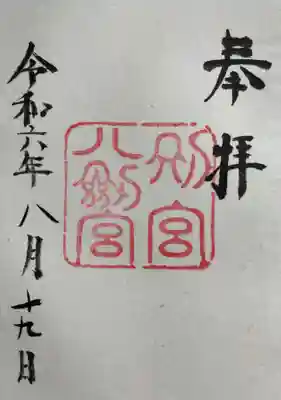 奉拝
別宮
八剱宮
令和六年八月十九日